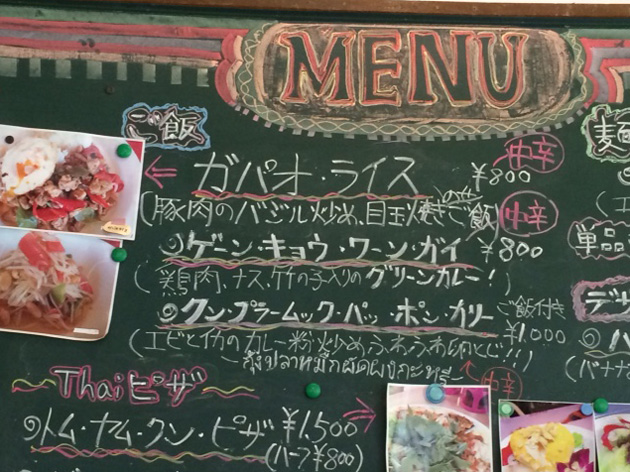 MENU
ご飯
中辛
ガパオ・ライス ¥800
(豚肉のバジル炒め、目玉焼きのせご飯)
中辛
ゲーン・キョウ・ワーン・ガイ ¥800
(鶏肉、ナス、竹の子入りのグリーンカレー!)
クン・プラームック・パッ・ポン・カリー ご飯付き ¥1,000
(エビとイカのカレー粉炒めふわふわ卵とじ!!)
~กุ้งปลาหมึกผัดผงกะหรี่~
中辛
Thaiピザ
トム・ヤム・クン・ピザ ¥1,500
(ハーフ¥800)
麺
単品
デザ
(バナナ